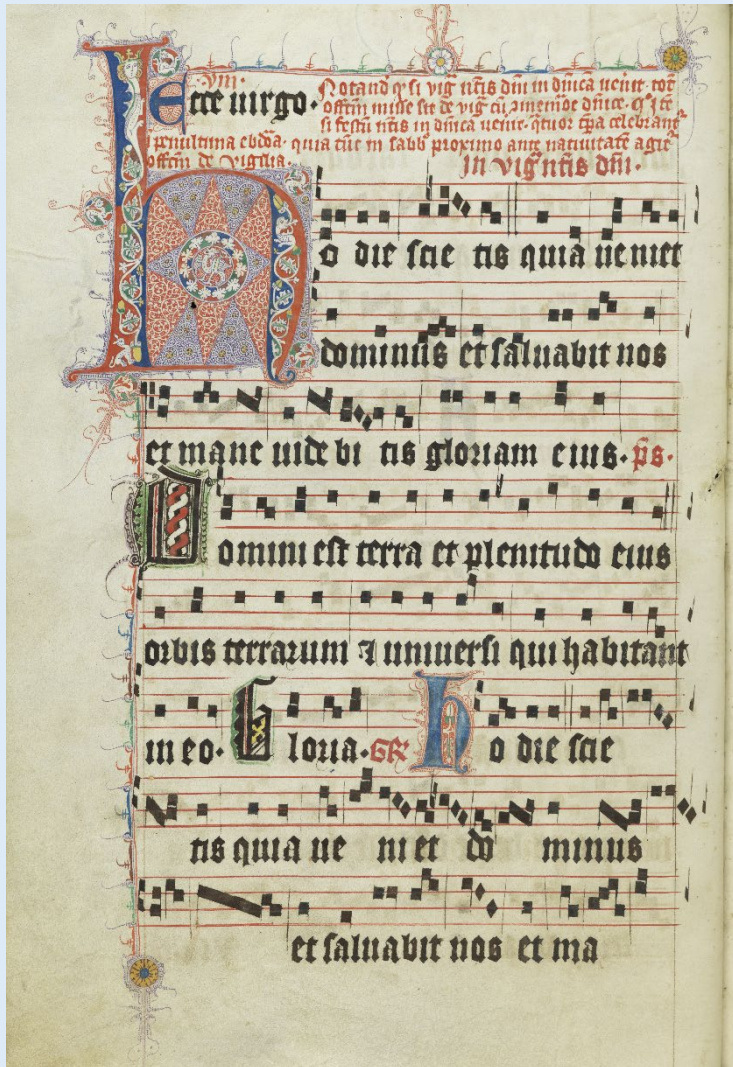 .viii.
Ecce uirgo. Notand q si vig nŧis dñi in dñica uenit. tot
offm misse fit de vig cū
si festū nŧis in dñica uenit.
penultima ebdōa. quia tūc in sabb proximo ante natiuitatē
offm de vigilia. In vig nŧis dñi.
Ho die scie tis quia ueniet
dominus et saluabit nos
et mane uide bi tis gloriam eius. p̄s.
Domini est terra et plenitudo eius
orbis terrarum ⁊ uniuersi qui habitant
in eo. Gloria. GR Ho die scie
tis quia ue niet do minus
et saluabit nos et ma